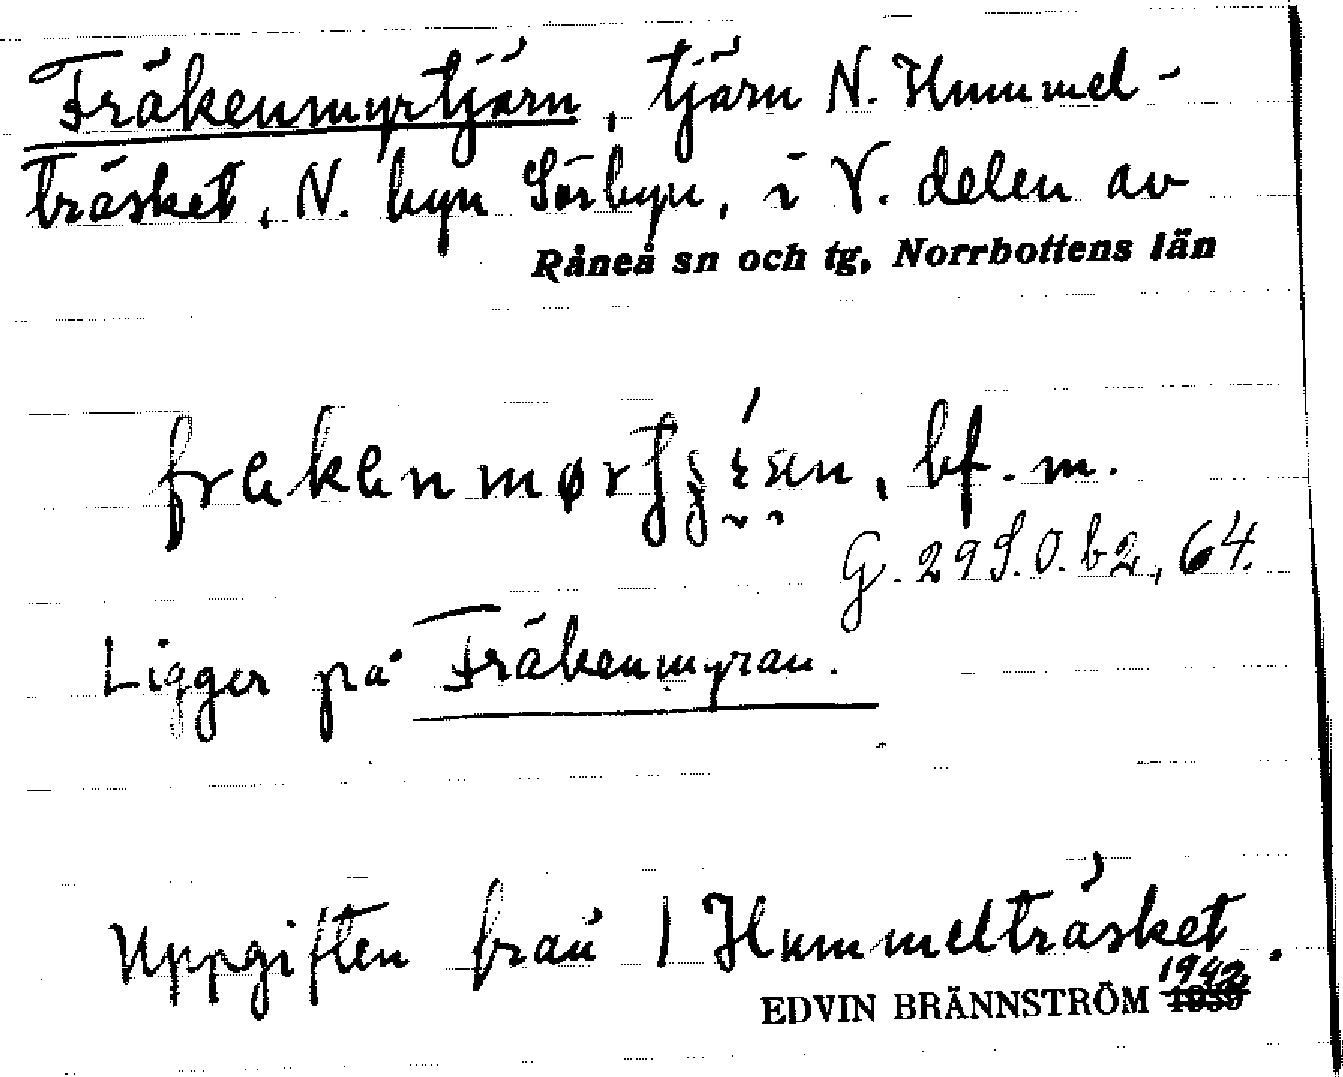 Fräkenmyrtjärn, tjärn N. Hummel-
träsket, N. byn Sörbyn, i V. delen av
Råneå sn och tg, Norrbottens län
bf. m.
G. 29 S. O. b 2, 64.
Ligger på Fräkenmyran.
Uppgiften från 1 Hummelträsket.
1942
EDVIN BRÄNNSTRÖM 1939